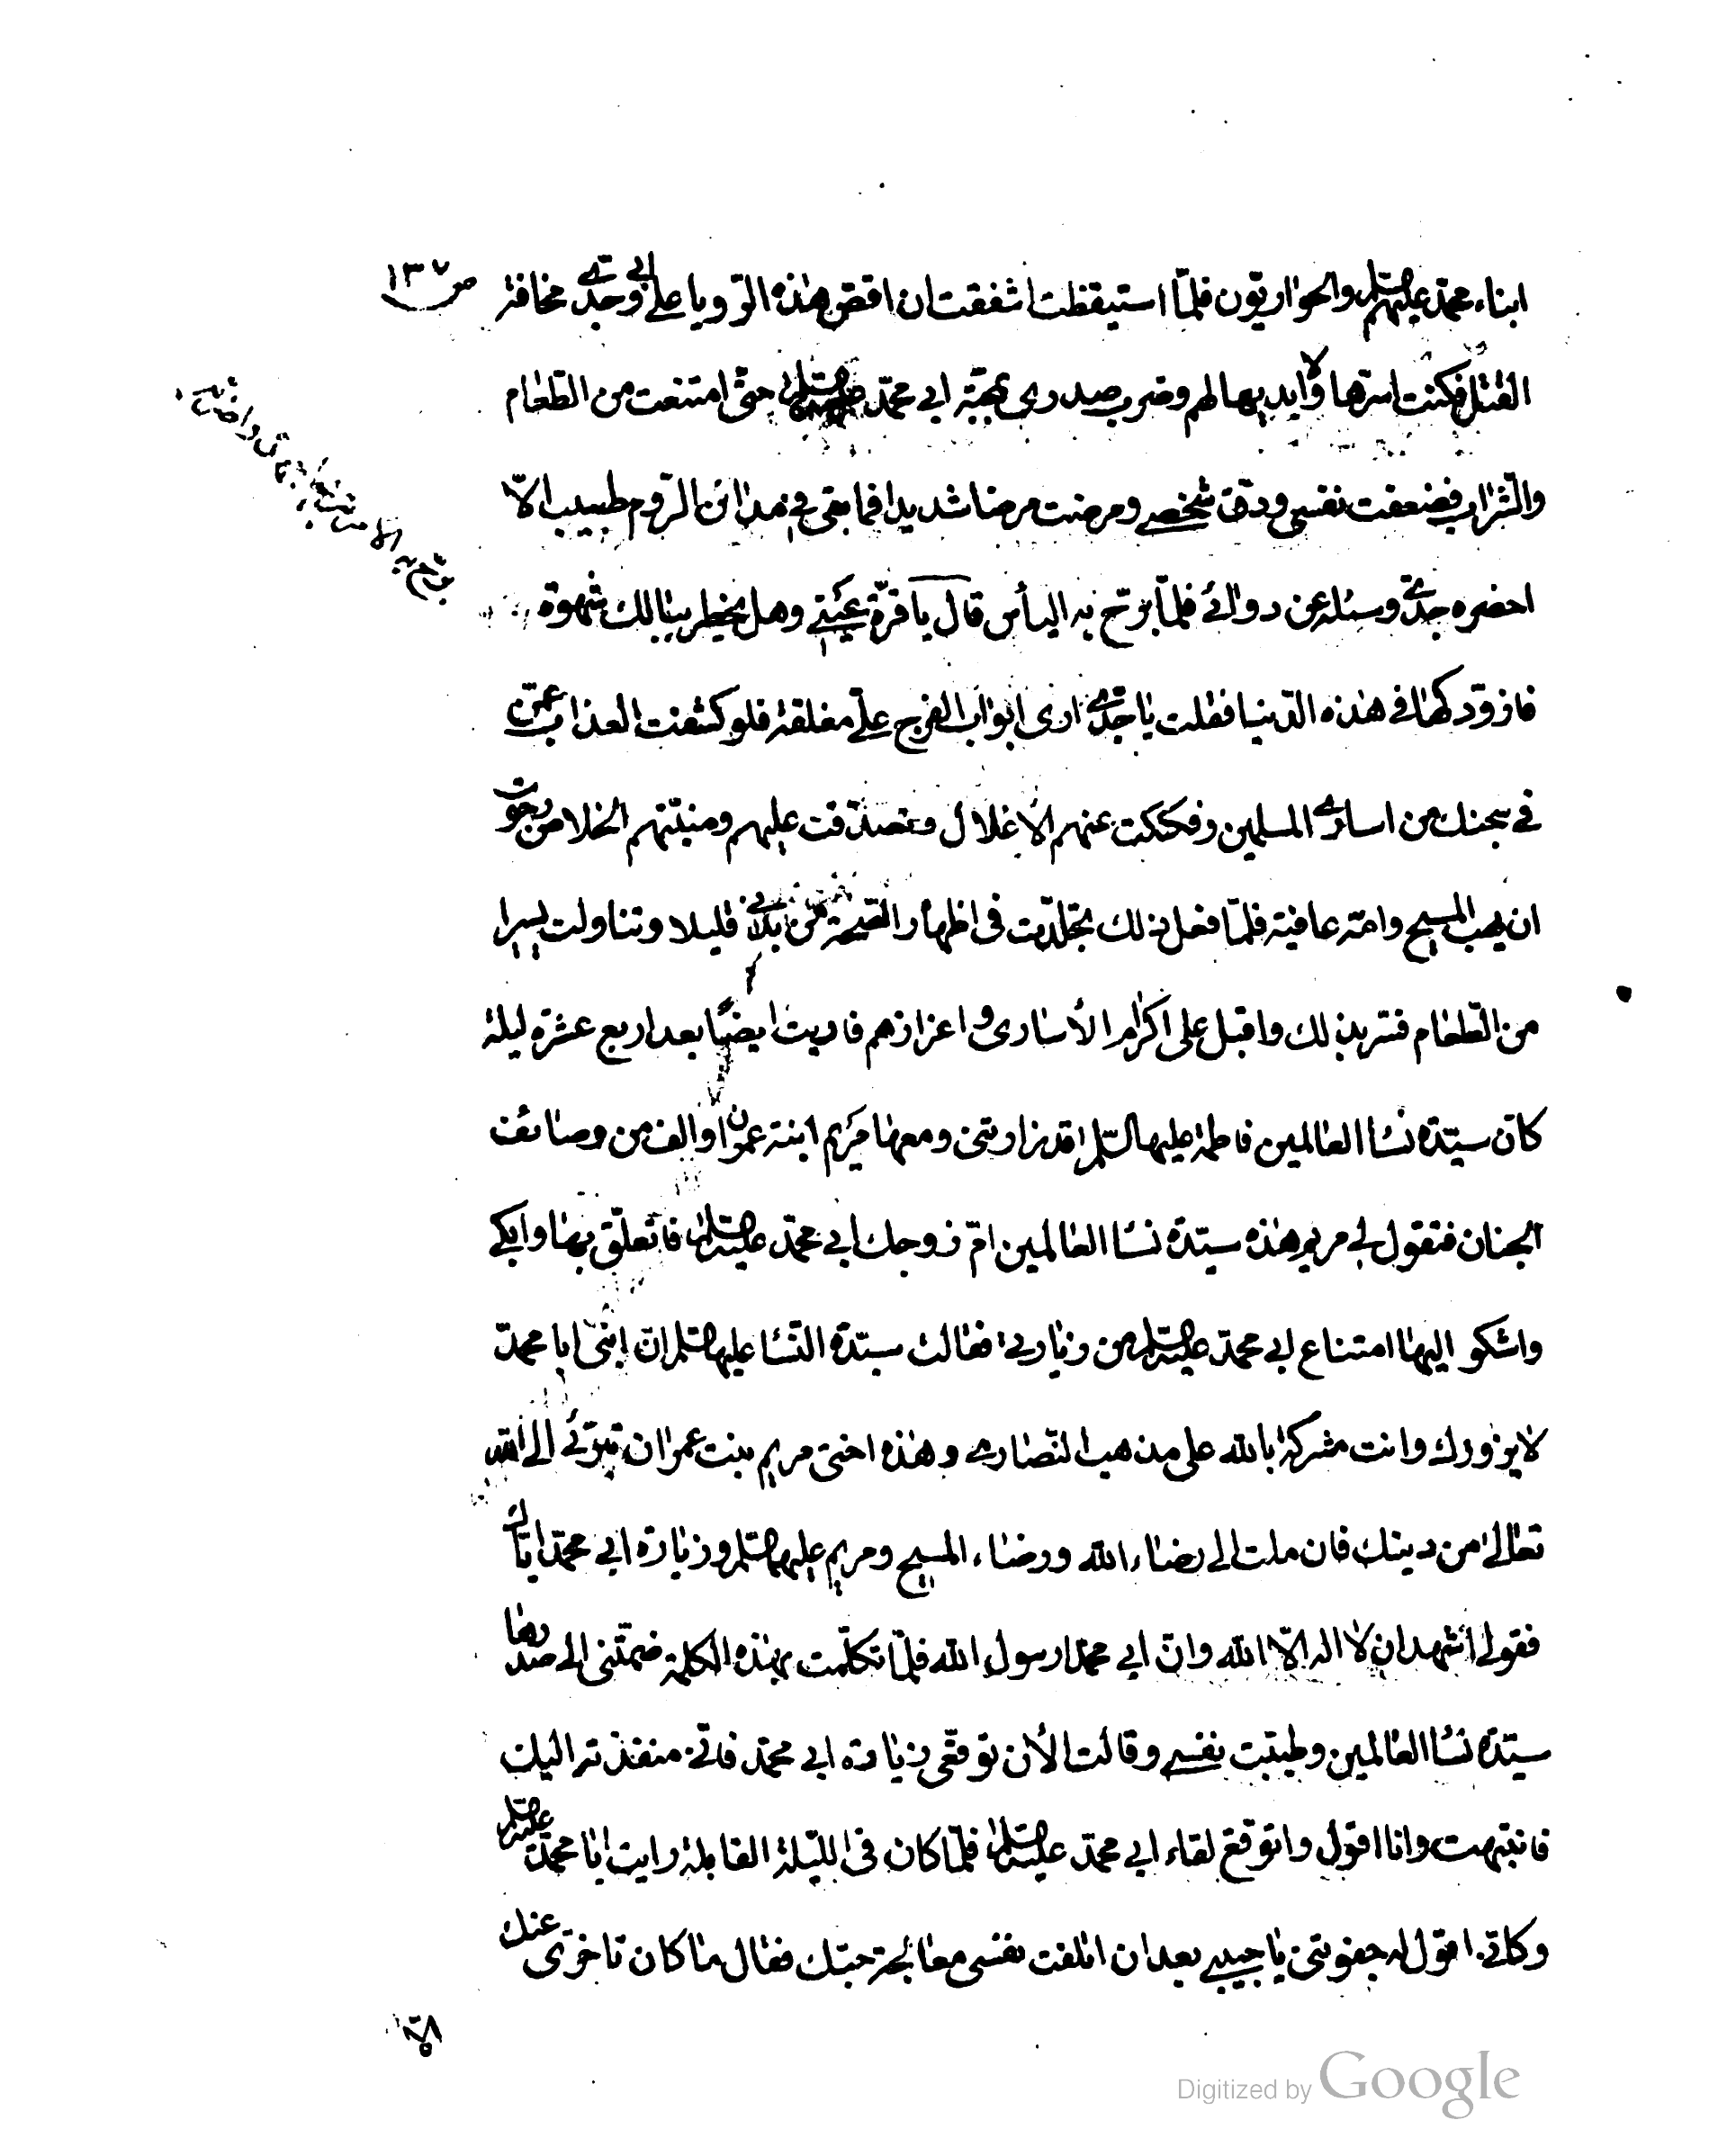 ص ١٣٧
ابناء محمد عليهم السلم والحواريون فلما استيقظت اشفقت ان اقص هذه الرويا على ابي وجدي مخافة
القتل فكنت اسرها ولا ابديها لهم وضرب صدري بمحبة ابي محمد عليه السلم حتى امتنعت من الطعام
والشراب فضعفت نفسي ودق شخصي ومرضت مرضا شديدا فما بقي في مدائن الروم طبيب الا
احضره جدي وسئله عن دوائي فلما برح به اليأس قال يا قرة عيني وهل يخطر ببالك شهوة
فازودكها في هذه الدنيا فقلت يا جدي ارى ابواب الفرج علي مغلقة فلو كشفت العذاب عمن
في سجنك من اسارى المسلمين وفككت عنهم الأغلال وتصدقت عليهم ومنيتهم الخلاص رجوت
ان يهب المسيح وامه عافية فلما فعل ذلك تجلدت في اظهار الصحة من بدني قليلا وتناولت يسيرا
من الطعام فسر بذلك واقبل على اكرام الأسارى واعزازهم فاريت ايضا بعد اربع عشرة ليلة
كان سيدة نسا العالمين فاطمة عليها السلم قد زارتني ومعها مريم ابنة عمران والف من وصائف
الجنان فتقول لي مريم هذه سيدة نسا العالمين ام زوجك ابي محمد عليه السلم فاتعلق بها وابكي
واشكو اليها امتناع ابي محمد عليه السلم من زيارتي فقالت سيدة النسا عليها السلم ان ابني ابا محمد
لا يزورك وانت مشركة بالله على مذهب النصارى وهذه اختي مريم بنت عمران تبرئ الى الله
تعالى من دينك فان ملت الى رضاء الله ورضاء المسيح ومريم عليهما السلم وزيارة ابي محمد اياك
فقولي اشهد ان لا اله الا الله وان ابي محمدا رسول الله فلما تكلمت بهذه الكلمة ضمتني الى صدرها
سيدة نسا العالمين وطيبت نفسي وقالت الأن توقعي زيارة ابي محمد فاني منفذته اليك
فانتبهت وانا اقول واتوقع لقاء ابي محمد عليه السلم فلما كان في الليلة القابلة رايت ابا محمد عليه السلم
وكاني اقول له جفوتني يا حبيبي بعد ان اتلفت نفسي معالجة حبك فقال ما كان تاخري عنك
الا
Digitized by Google